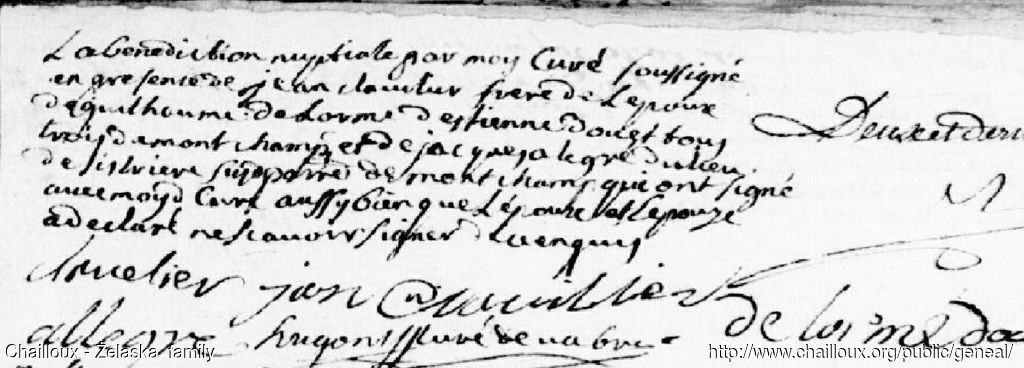 La benediction nuptiale par moy Curé soussigné
en presence de jean clavilier frere de Lepoux
de guilhoume de Lorme d'estienne douet tous
trois de montchamp et de jacques alegre du lieu
de sistrieres sus parre de montchamp qui ont signé
avec moyd Curé aussy bien que Lépoux et Lepouze
a declaré ne scavoir signer de ce enquis
Deux et deru
clavelier jan clavillier
de lorme
allegre hugon curé de vabre
Chailloux - Żelaska family
http://www.chailloux.org/public/geneal/